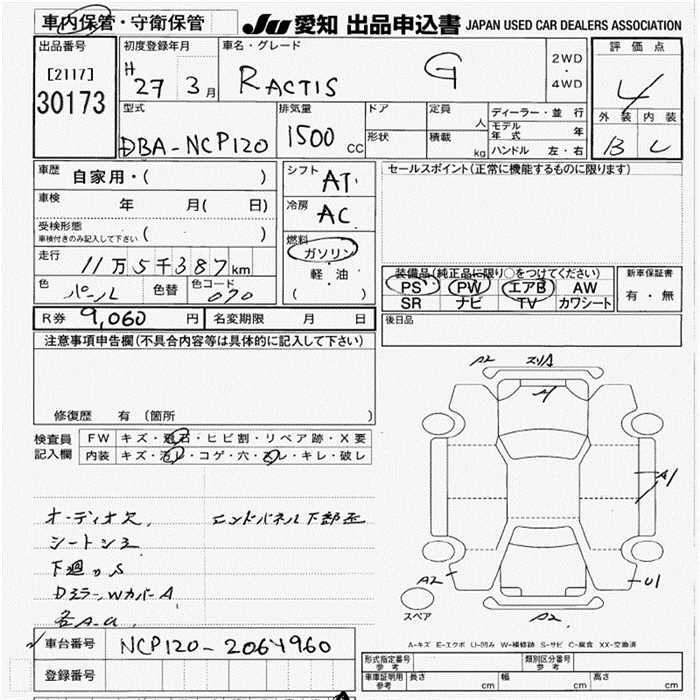 車内保管・守衛保管
JU 愛知 出品申込書 JAPAN USED CAR DEALERS ASSOCIATION
出品番号
[2117]
30173
初度登録年月
H 27 3月
車名・グレード
RACTIS G
2WD
・
4WD
評価点
4
外装 内装
B C
型式
DBA-NCP120
排気量
1500 cc
ドア
形状
定員 人
積載 kg
ディーラー・並行
モデル年式 年
ハンドル 左・右
車歴 自家用・( )
車検 年 月( 日)
受検形態
車検付きのみ記入して下さい ( )
走行 11万5千387km
色 パール 色替 色コード 070
シフト AT
冷房 AC
燃料
ガソリン
・
軽・油
( )
セールスポイント(正常に機能するものに限ります)
装備品(純正品に限り○をつけてください)
PS PW エアB AW
SR ナビ TV カワシート
新車保証書
有・無
R券 9,060 円 名変期限 月 日
後日品
注意事項申告欄(不具合内容等は具体的に記入して下さい)
修復歴 有 〔箇所
検査員
記入欄
FW キズ・飛石・ヒビ割・リペア跡・X要
内装 キズ・汚レ・コゲ・穴・スレ・キレ・破レ
オーディオ欠 エンドパネル下部歪
シートシミ
下廻りS
DミラーWカバーA
各A.U
A2 スリA
A1
A1
A2
U1
A2
スペア
A-キズ E-エクボ U-凹み W-補修跡 S-サビ C-腐食 XX-交換済
車台番号 NCP120-2064960
登録番号
形式指定番号
参考
類別区分番号
参考
車庫証明用
参考
長さ cm 幅 cm 高さ cm